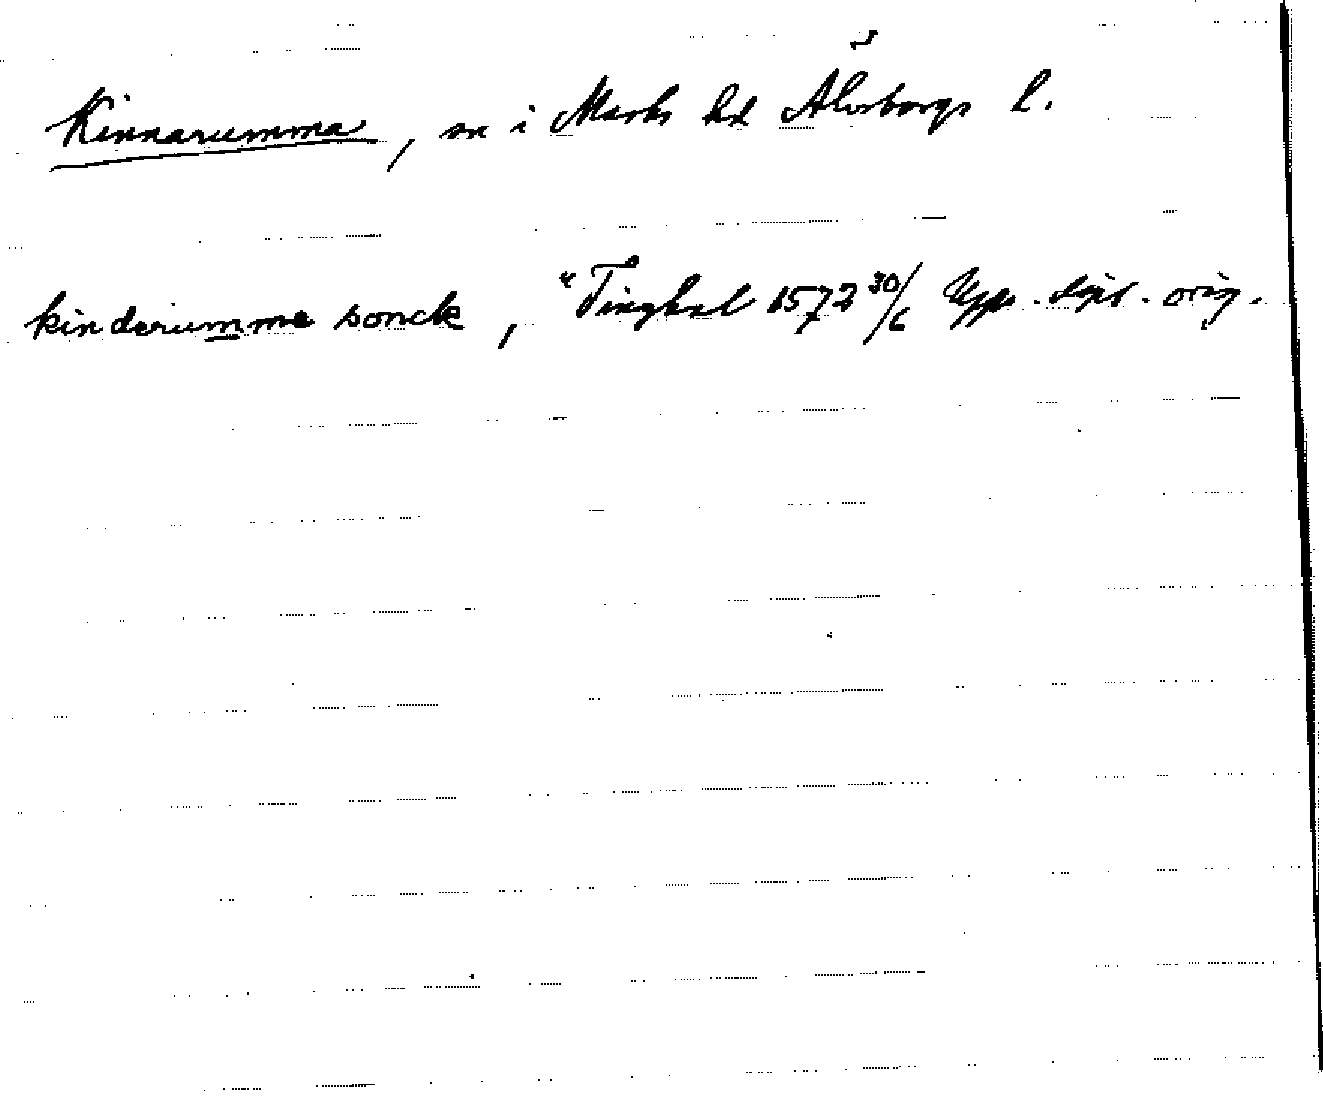 Kinnarumma, sn i Marks hd Älvsborgs l.
kinderumme sonck, "Tinghal 1572 30/6 Upps. dipl. orig.